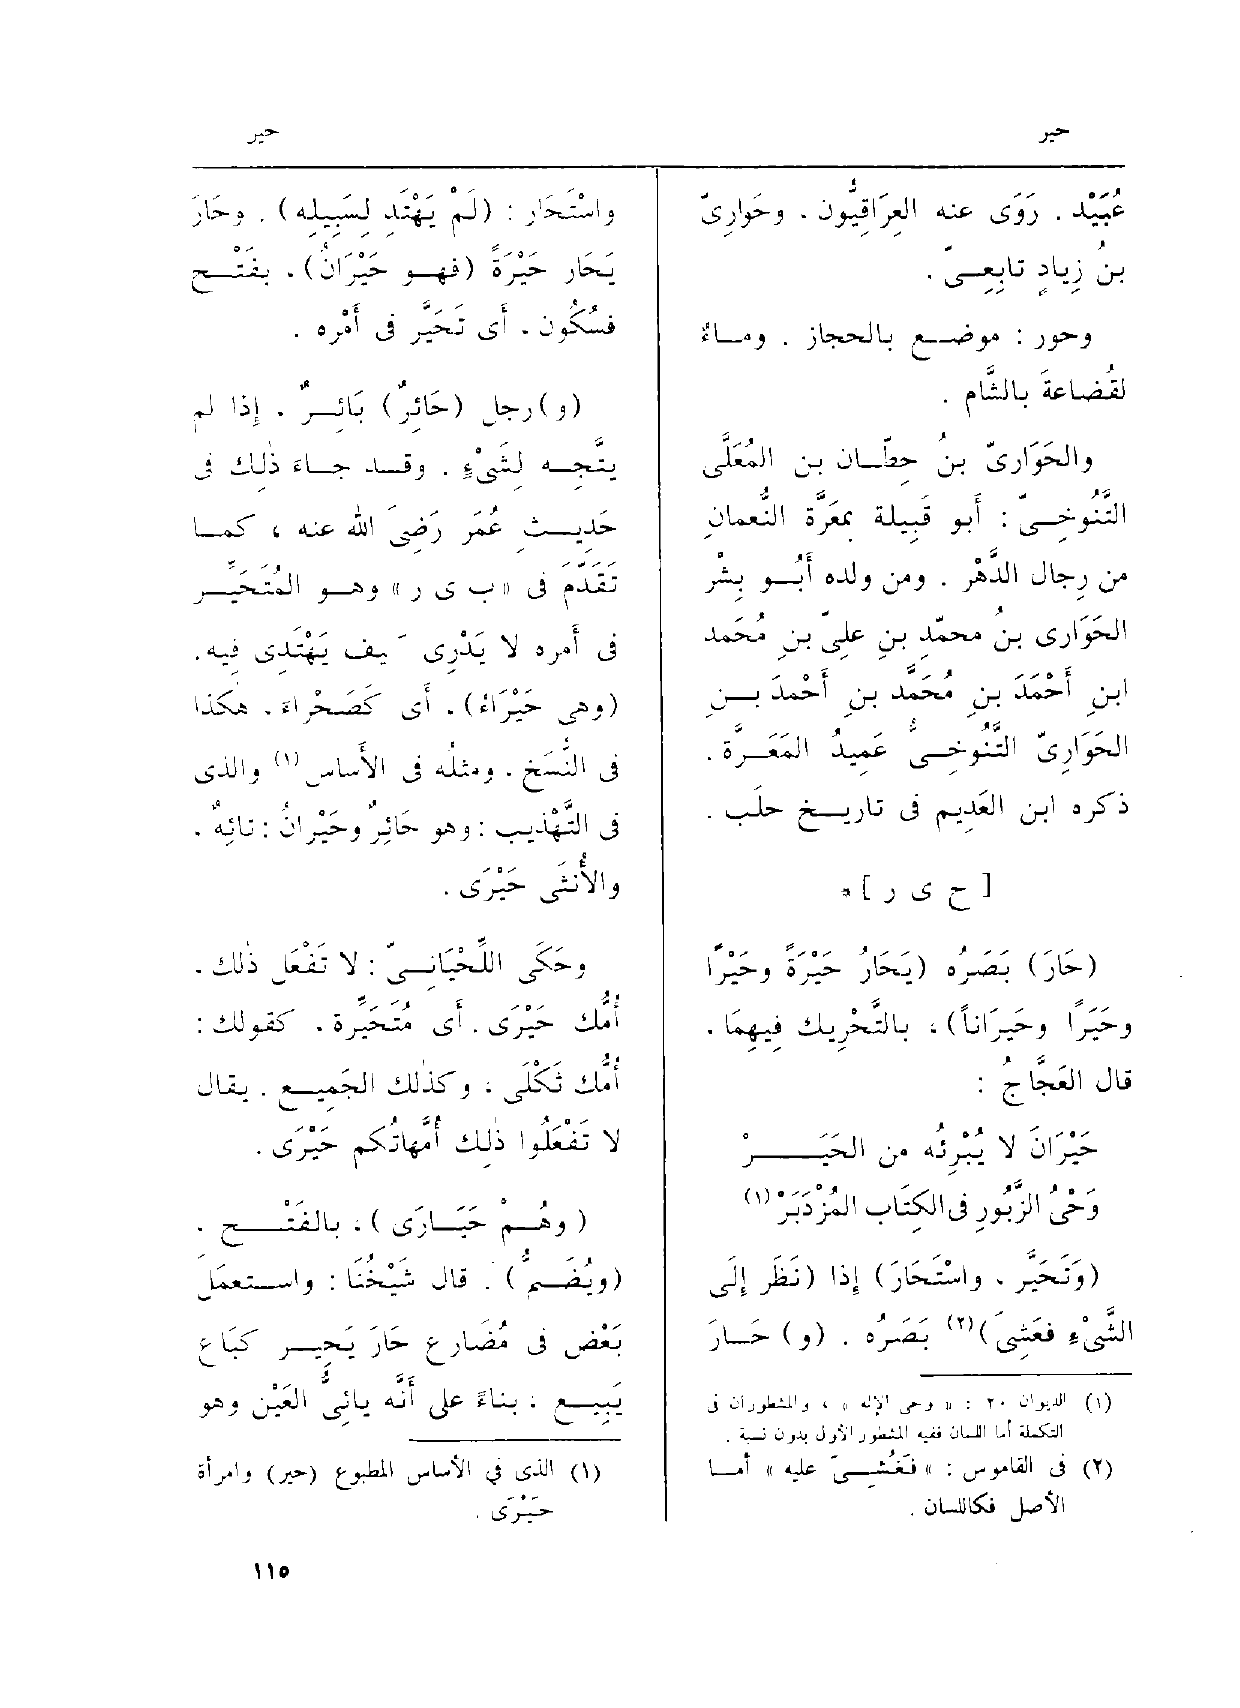 حير
حير
عُبَيْد . رَوَى عنه العِرَاقِيُّون ، وحَوارِىّ
بنُ زِيادٍ تابِعِىّ .
وحور : موضـع بالحجاز . ومـاءٌ
لقُضاعةَ بالشَّام .
والحَوَارِىّ بنُ حِطَّـان بن المُعَلَّى
التَّنُوخِـىّ : أَبو قَبِيلة بمَعَرَّة النُّعمانِ
من رِجال الدَّهْر . ومن ولده أَبُـو بِشْر
الحَوَارِى بنُ محمّدِ بنِ علىِّ بنِ مُحَمَد
ابنِ أَحْمَدَ بنِ مُحَمَّد بنِ أَحْمدَ بـنِ
الحَوَارِىّ التَّنُوخـىُّ عَمِيدُ المَعَـرَّة .
ذكره ابن العَدِيم فى تاريـخ حلَب .
[ ح ى ر ] *
(حَارَ) بَصَرُه (يَحَارُ حَيْرَةً وحَيْرًا
وحَيَرًا وحَيَرَاناً) ، بالتَّحْرِيك فِيهِمَا .
قال العَجَّاجُ :
حَيْرَانَ لا يُبْرِئُه من الحَيَـــرْ
وَحْىُ الزَّبُورِ فى الكِتَاب المُزْدَبَرْ (١)
(وَتَحَيَّر ، واسْتَحَارَ) إِذا (نَظَر إِلَى
الشَّىْءِ فعَشِىَ) (٢) بَصَرُه . (و) حَـارَ
(١) الديوان ٢٠ : « وحى الإله » ، والمشطوران فى
التكملة أما اللسان ففيه المشطور الأول بدون نسبة .
(٢) فى القاموس : « فَغُشِـىَ عليه » أمـا
الأصل فكاللسان .
واسْتَحَار : (لَمْ يَهْتَدِ لِسَبِيلِه) . وحَارَ
يَحَار حَيْرَةً (فهـو حَيْرَانُ) ، بفَتْـح
فسُكُون ، أَى تَحَيَّر فى أَمْرِه .
(و) رجل (حَائِرٌ) بَائِـرٌ ، إِذا لم
يتَّجِـه لِشَىْءٍ . وقـد جـاءَ ذٰلك فى
حَدِيـث عُمَر رَضِىَ الله عنه ، كمـا
تَقَدَّم فى «ب ى ر» وهـو المُتَحَيِّـر
فى أَمره لا يَدْرِى يف يَهْتَدِى فِيه .
(وهى حَيْرَاءُ) ، أَى كَصَحْراءَ . هٰكذا
فى النُّسَخِ . ومثلُه فى الأَساس (١) والذى
فى التَّهْذِيب : وهو حَائِرٌ وحَيْرانُ : تائِهٌ .
والأُنثَى حَيْرَى .
وحَكَى اللِّحْيَانِـىّ : لا تَفْعَلْ ذٰلك ،
أُمُّك حَيْرَى . أَى مُتَحَيِّرة ، كقولك :
أُمُّك ثَكْلَى ، وكذٰلك الجَمِيـع . يقال
لا تَفْعَلُوا ذٰلِك أُمَّهاتُكم حَيْرَى .
(وهُـمْ حَيَـارَى) ، بالفَتْـح ،
(ويُضَـمُّ) . قال شَيْخُنَا : واستعمَلَ
بَعْض فى مُضَارِع حَارَ يَحِيـر كبَاع
يَبِيـع ، بناءً على أَنَّه يائِىُّ العَيْن وهو
(١) الذى في الأساس المطبوع (حير) وامرأة
حَيْـرَى .
١١٥